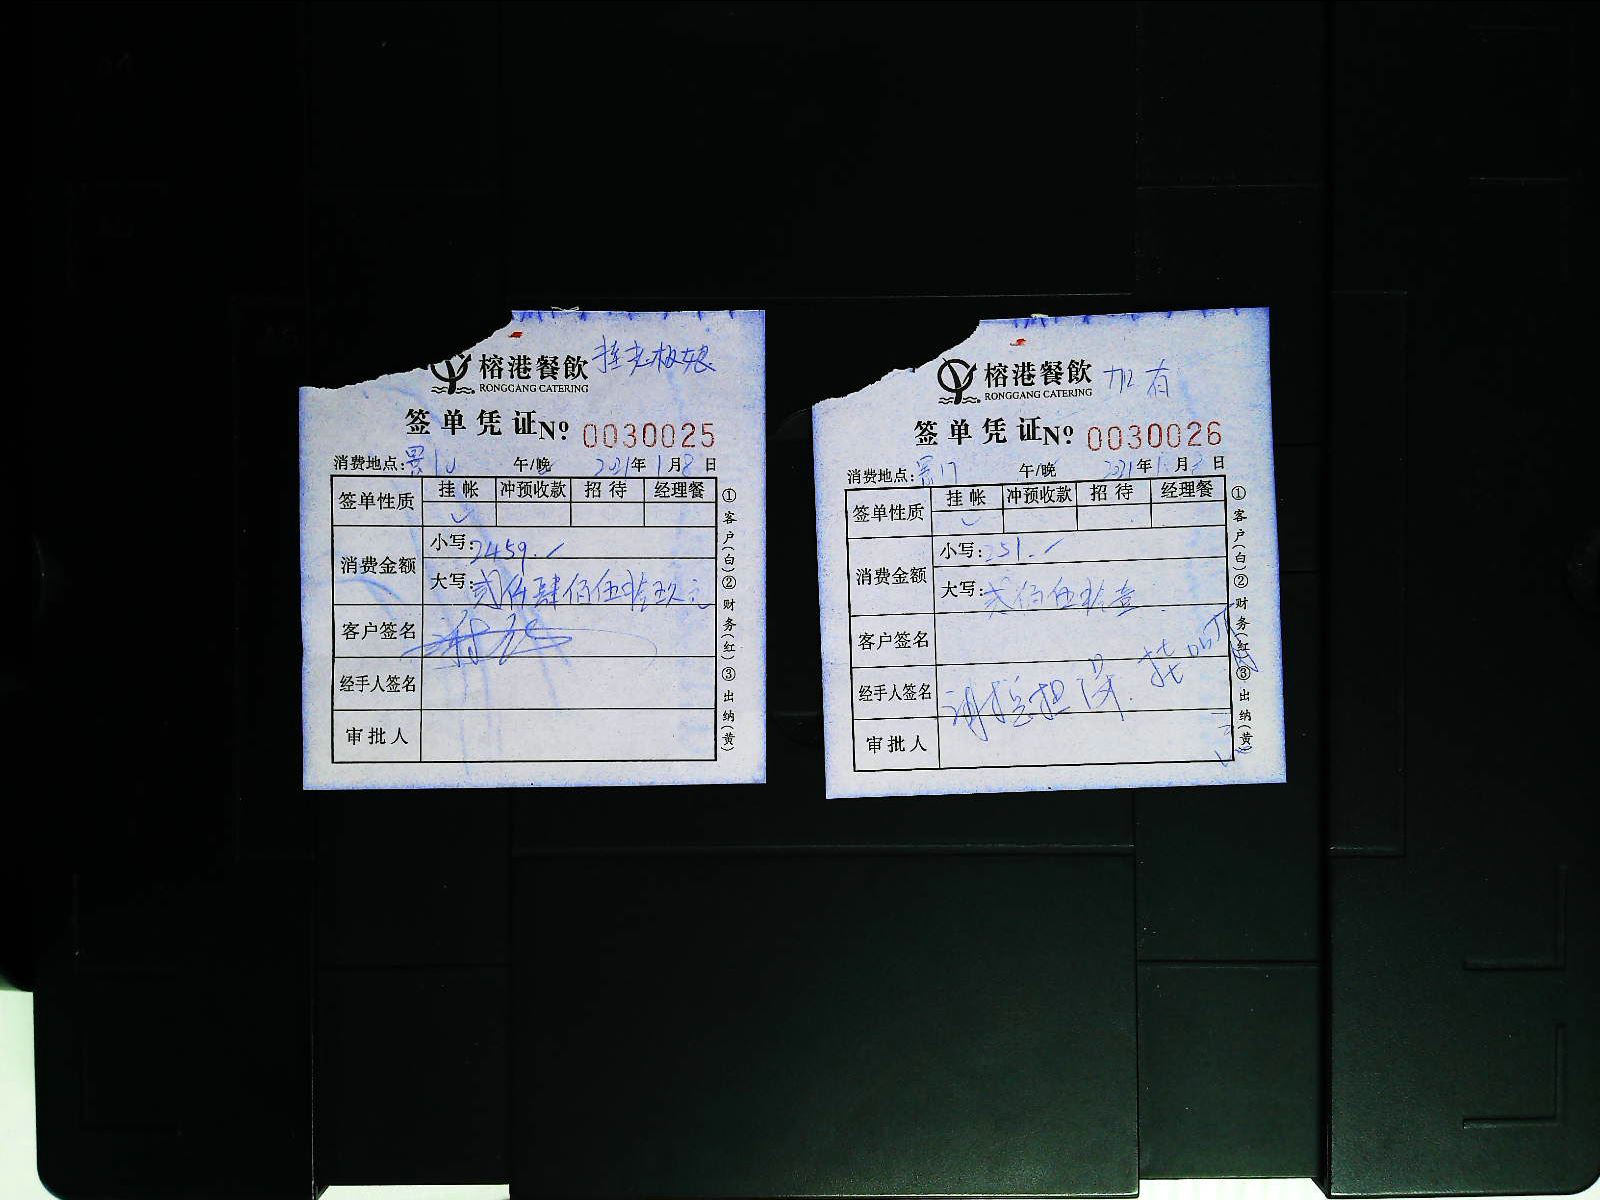 榕港餐飲 挂老板娘
RONGGANG CATERING
签单凭证 Nº 0030025
消费地点: 午/晚 2021年1月8日
签单性质 挂帐 冲预收款 招待 经理餐
✓
消费金额 小写: 2459.
大写: 贰仟肆佰伍拾玖元
客户签名
经手人签名
审批人
①客户(白)②财务(红)③出纳(黄)
榕港餐飲 加有
RONGGANG CATERING
签单凭证 Nº 0030026
消费地点: 午/晚 2021年1月8日
签单性质 挂帐 冲预收款 招待 经理餐
✓
消费金额 小写: 251.
大写: 贰佰伍拾壹
客户签名
经手人签名
审批人
①客户(白)②财务(红)③出纳(黄)